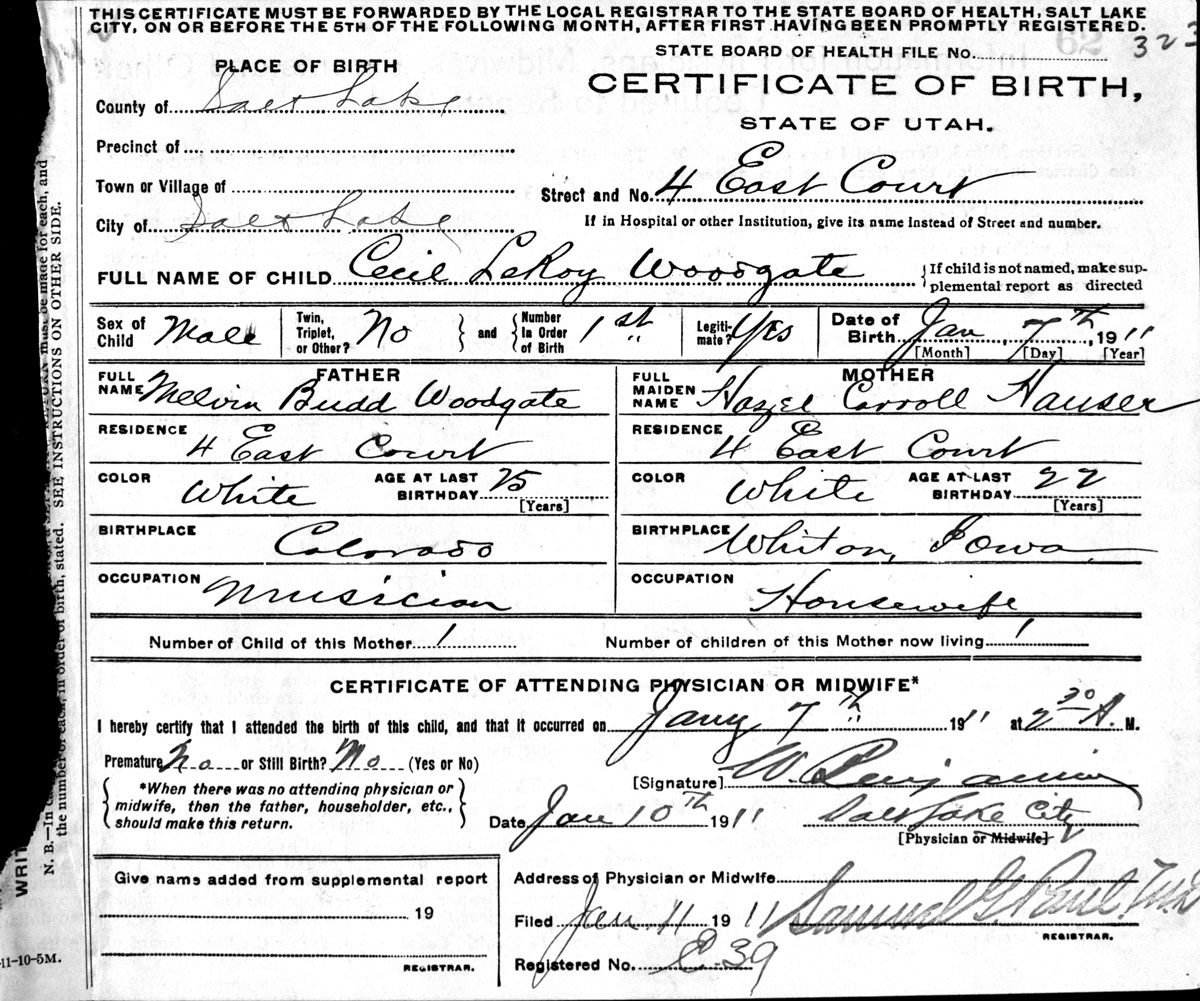 THIS CERTIFICATE MUST BE FORWARDED BY THE LOCAL REGISTRAR TO THE STATE BOARD OF HEALTH, SALT LAKE
CITY, ON OR BEFORE THE 5TH OF THE FOLLOWING MONTH, AFTER FIRST HAVING BEEN PROMPTLY REGISTERED.
62
STATE BOARD OF HEALTH FILE No. 323
PLACE OF BIRTH
CERTIFICATE OF BIRTH,
County of Salt Lake
STATE OF UTAH.
Precinct of
Town or Village of
Street and No. 4 East Court
City of Salt Lake
If in Hospital or other Institution, give its name instead of Street and number.
FULL NAME OF CHILD Cecil LeRoy Woodgate
If child is not named, make sup-
plemental report as directed
Sex of Child Male
Twin, Triplet, or Other? No
and
Number in Order of Birth 1st
Legiti-mate? Yes
Date of Birth Jan, 7th, 1911
[Month] [Day] [Year]
FATHER
FULL NAME Melvin Budd Woodgate
MOTHER
FULL MAIDEN NAME Hazel Carroll Hauser
RESIDENCE 4 East Court
RESIDENCE 4 East Court
COLOR White AGE AT LAST BIRTHDAY 25 [Years]
COLOR White AGE AT LAST BIRTHDAY 22 [Years]
BIRTHPLACE Colorado
BIRTHPLACE Whiton, Iowa
OCCUPATION Musician
OCCUPATION Housewife
Number of Child of this Mother 1
Number of children of this Mother now living 1
CERTIFICATE OF ATTENDING PHYSICIAN OR MIDWIFE*
I hereby certify that I attended the birth of this child, and that it occurred on Jany 7th 1911 at 2 30 A. M.
Premature No or Still Birth? No (Yes or No)
[Signature] W. Benjamin
*When there was no attending physician or
midwife, then the father, householder, etc.,
should make this return.
Date Jan 10th 1911 Salt Lake City
[Physician or Midwife]
Give name added from supplemental report
19
REGISTRAR.
Address of Physician or Midwife
Filed Jan 11 1911 Samuel G. Paul M.D.
REGISTRAR.
Registered No. C-39
11-10-5M.
WRIT
N. B.—In
RETURN must be made for each, and
the number of each, in order of birth, stated. SEE INSTRUCTIONS ON OTHER SIDE.